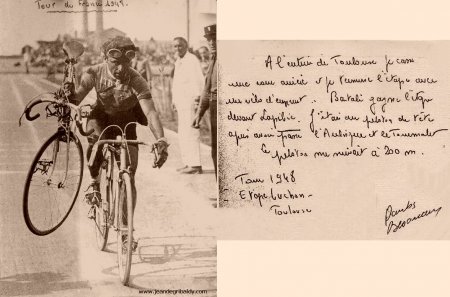 Tour de France 1948.
A l'entrée de Toulouse je casse
une roue arrière et je termine l'étape avec
un vélo d'emprunt. Batali gagne l'étape
devant Lapébie. J'étais au peloton de tête
après avoir passé l'Aubisque et le Tourmalet
Le peloton me suivait à 200 m.
Tour 1948
Etape Luchon-
Toulouse
www.jeandegribaldy.com